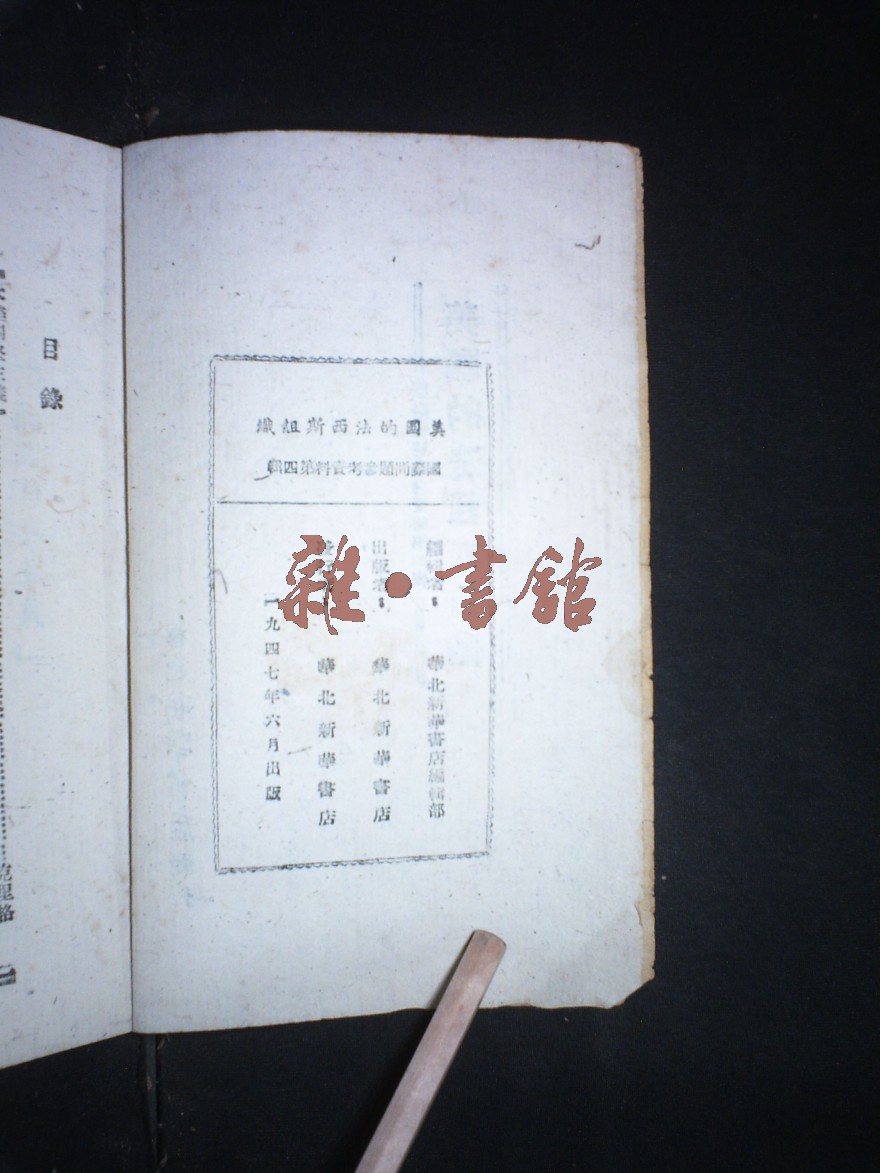 美國的法西斯組織
國際問題參考資料第四輯
編輯者：華北新華書店編輯部
出版者：華北新華書店
發行者：華北新華書店
一九四七年六月出版
目錄
雜·書館